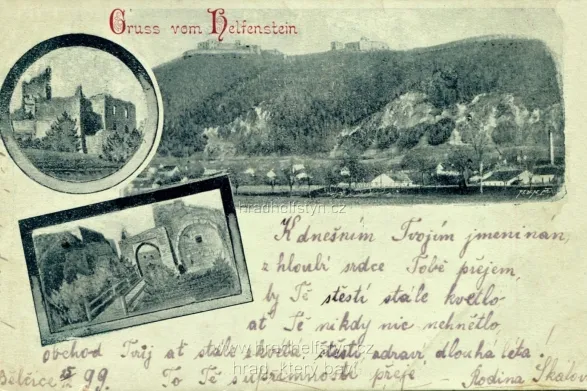 Gruss vom Helfenstein
www.hradhelfstyn.cz
K dnešním Tvojím jmeninam,
z hloubi srdce Tobě přejem,
by Tě stěstí stále kvetlo
at Tě nikdy nic nehnětlo,
www.hradhelfstyn.cz
obchod Tvůj at stále zkvétá, štěstí zdraví dlouhá léta.
hrad, který baví
99. To Tě s upřímností přeje — Rodina